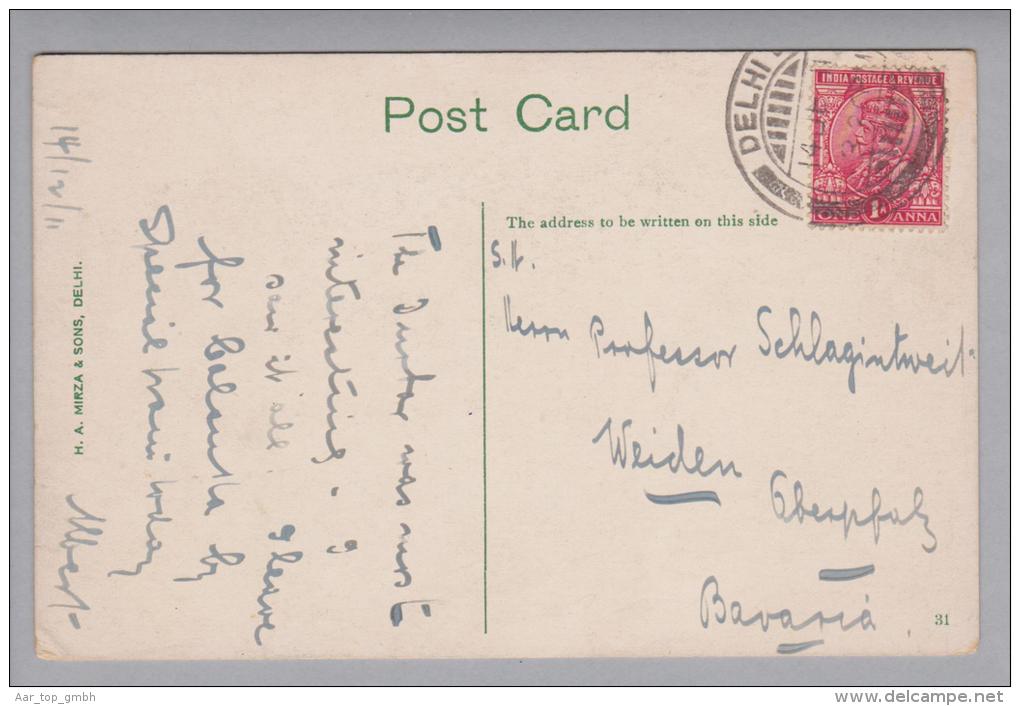 Post Card
DELHI
14
INDIA POSTAGE & REVENUE
ONE 1A ANNA
The address to be written on this side
S. H.
Herrn Professor Schlagintweit
Weiden
Oberpfalz
Bavaria
31
14/12/11
The Durbar was most
interesting - I
saw it all. I leave
for Calcutta by
Special train today
Albert
H. A. MIRZA & SONS, DELHI.
Aar_top_gmbh
www.delcampe.net